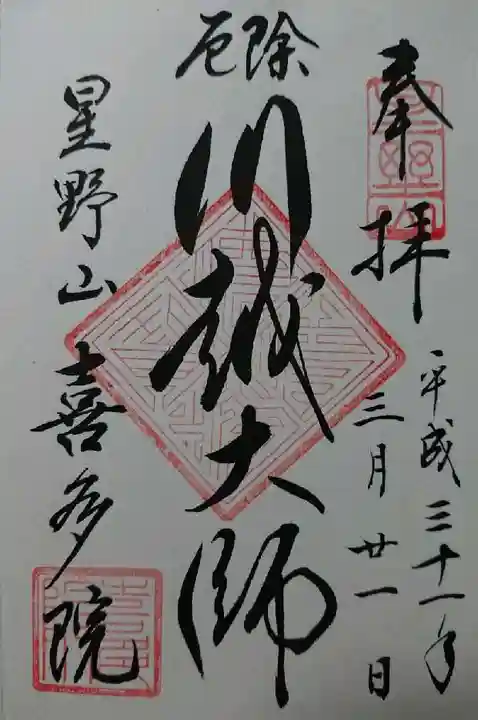 奉拝
平成三十一年
三月廿一日
厄除
川越大師
星野山喜多院